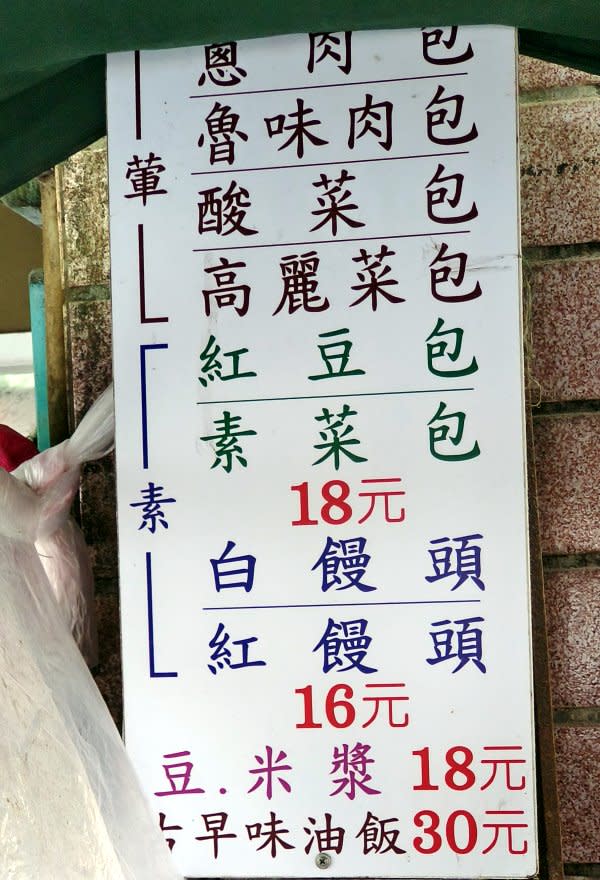 蔥肉包
魯味肉包
葷
酸菜包
高麗菜包
紅豆包
素菜包
18元
素
白饅頭
紅饅頭
16元
豆.米漿 18元
古早味油飯30元